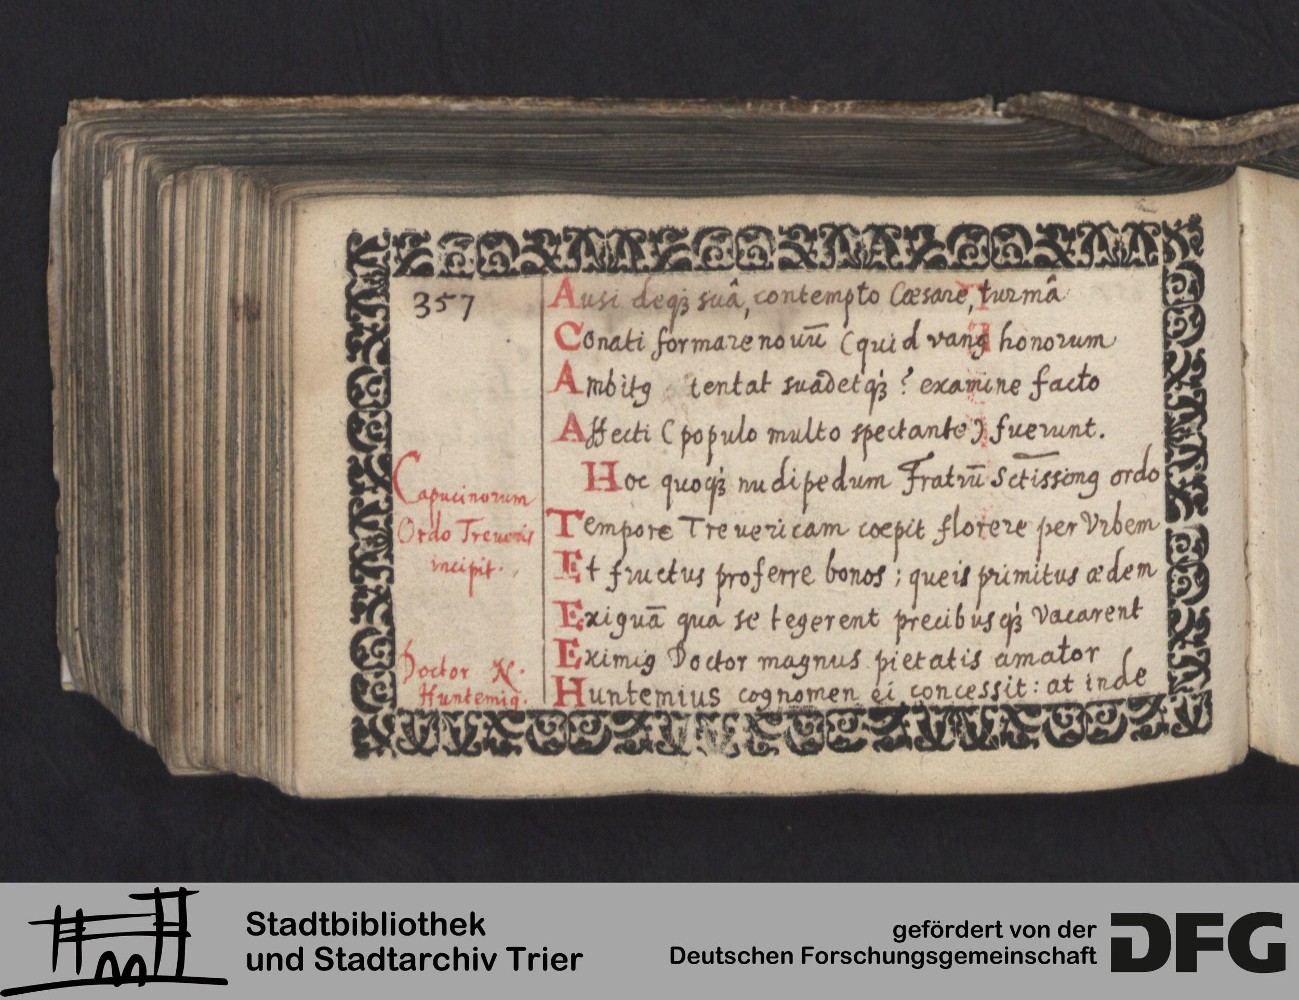 357
Ausi deqꝫ suâ, contempto Cæsare, turmâ
Conati formare nouū (quid vanꝰ honorum
Ambitꝰ tentat suādetqꝫ? examine facto
Affecti (populo multo spectante) fuerunt.
Hoc quoqꝫ nudipedum Fratrū Sctissimꝰ ordo
Tempore Treuericam coepit florere per Vrbem
Et fructus proferre bonos; queis primitus ædem
Exiguā qua se tegerent precibusqꝫ vacarent
Eximiꝰ Doctor magnus pietatis amator
Huntemius cognomen ei concessit: at inde
Capucinorum
Ordo Treueris
incipit.
Doctor N.
Huntemiꝰ.
Stadtbibliothek
und Stadtarchiv Trier
gefördert von der
Deutschen Forschungsgemeinschaft
DFG